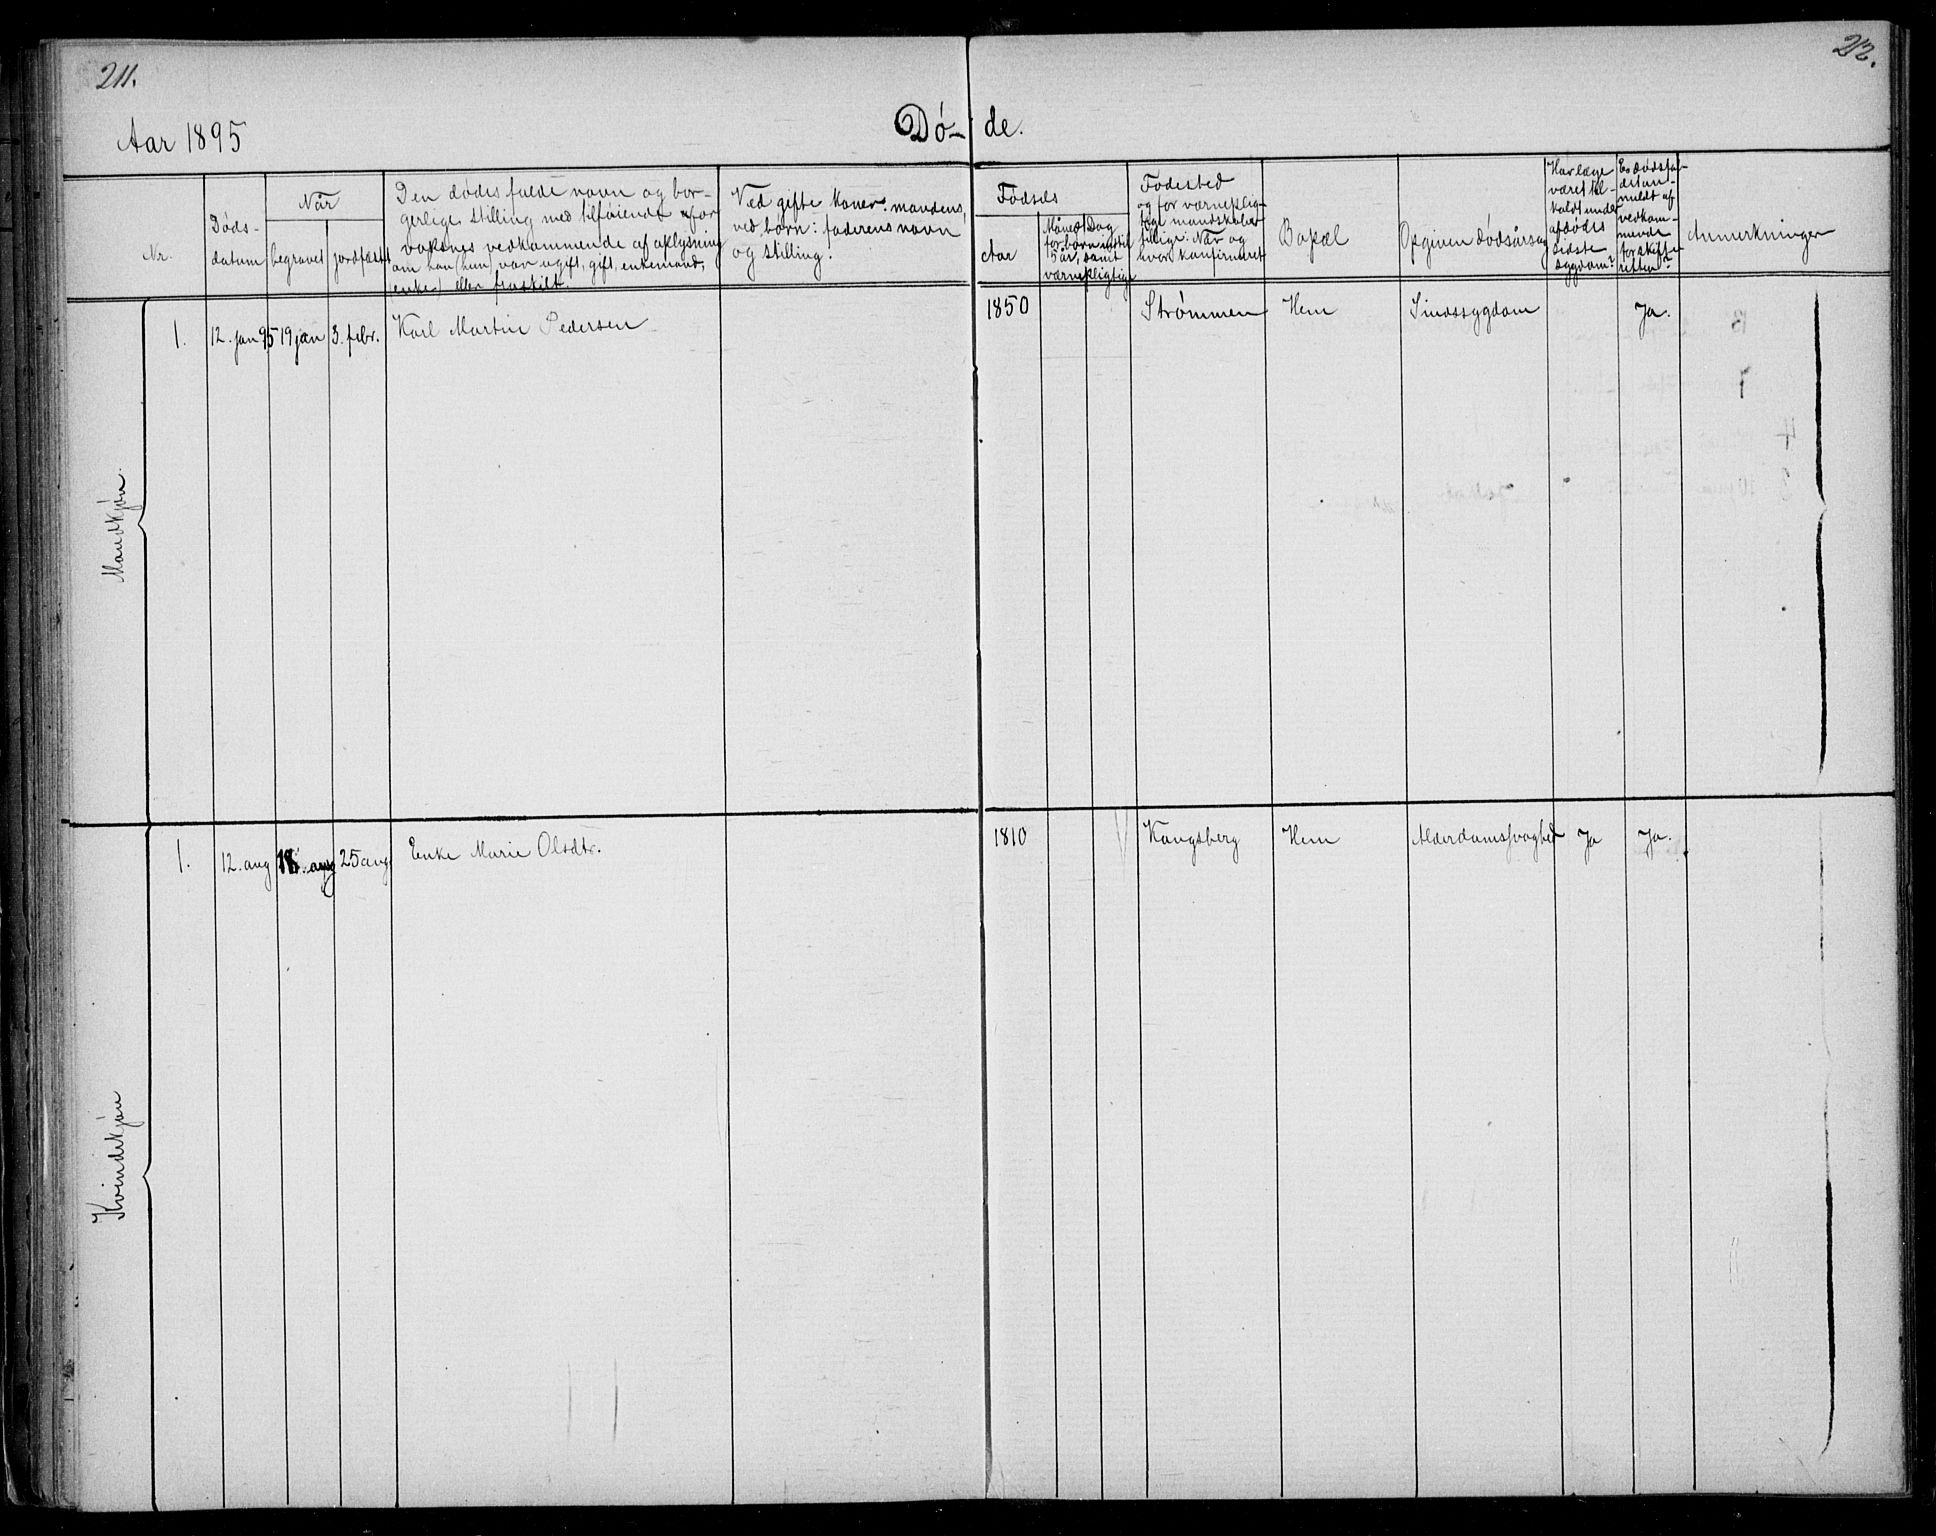 211.
212.
Aar 1895
Dø-
de.
Nr.
Døds-
datum
Når
begravet
jordfæstet
Den dødes fulde navn og bor-
gerlige stilling med tilføiende for
voksnes vedkommende af oplysning
om han (hun) var ugift, gift, enkemand,
enke eller fraskilt.
Ved gifte koner: mandens,
ved børn: faderens navn
og stilling.
Fødsels
Aar
Måned
Dag
for børn indtil
5 år, samt
værnepligtige
Fødested
og for værneplig-
tige mandskaber
tillige: Når og
hvor konfirmeret
Bopæl
Opgiven dødsårsag
Har læge
været til-
kaldt under
afdødes
sidste
sygdom?
Er dødsfal-
det an-
meldt af
vedkom-
mende
for skifte-
retten?
Anmerkninger
Mandkjøn.
1.
12. jan 95
19 jan
3. febr.
Karl Martin Pedersen
1850
Strømmen
Hem
Sindssygdom
Ja.
Kvindekjøn
1.
12. aug
18. aug
25 aug
Enke Marie Olsdtr.
1810
Kongsberg
Hem
Alderdomssvaghed
Ja
Ja.